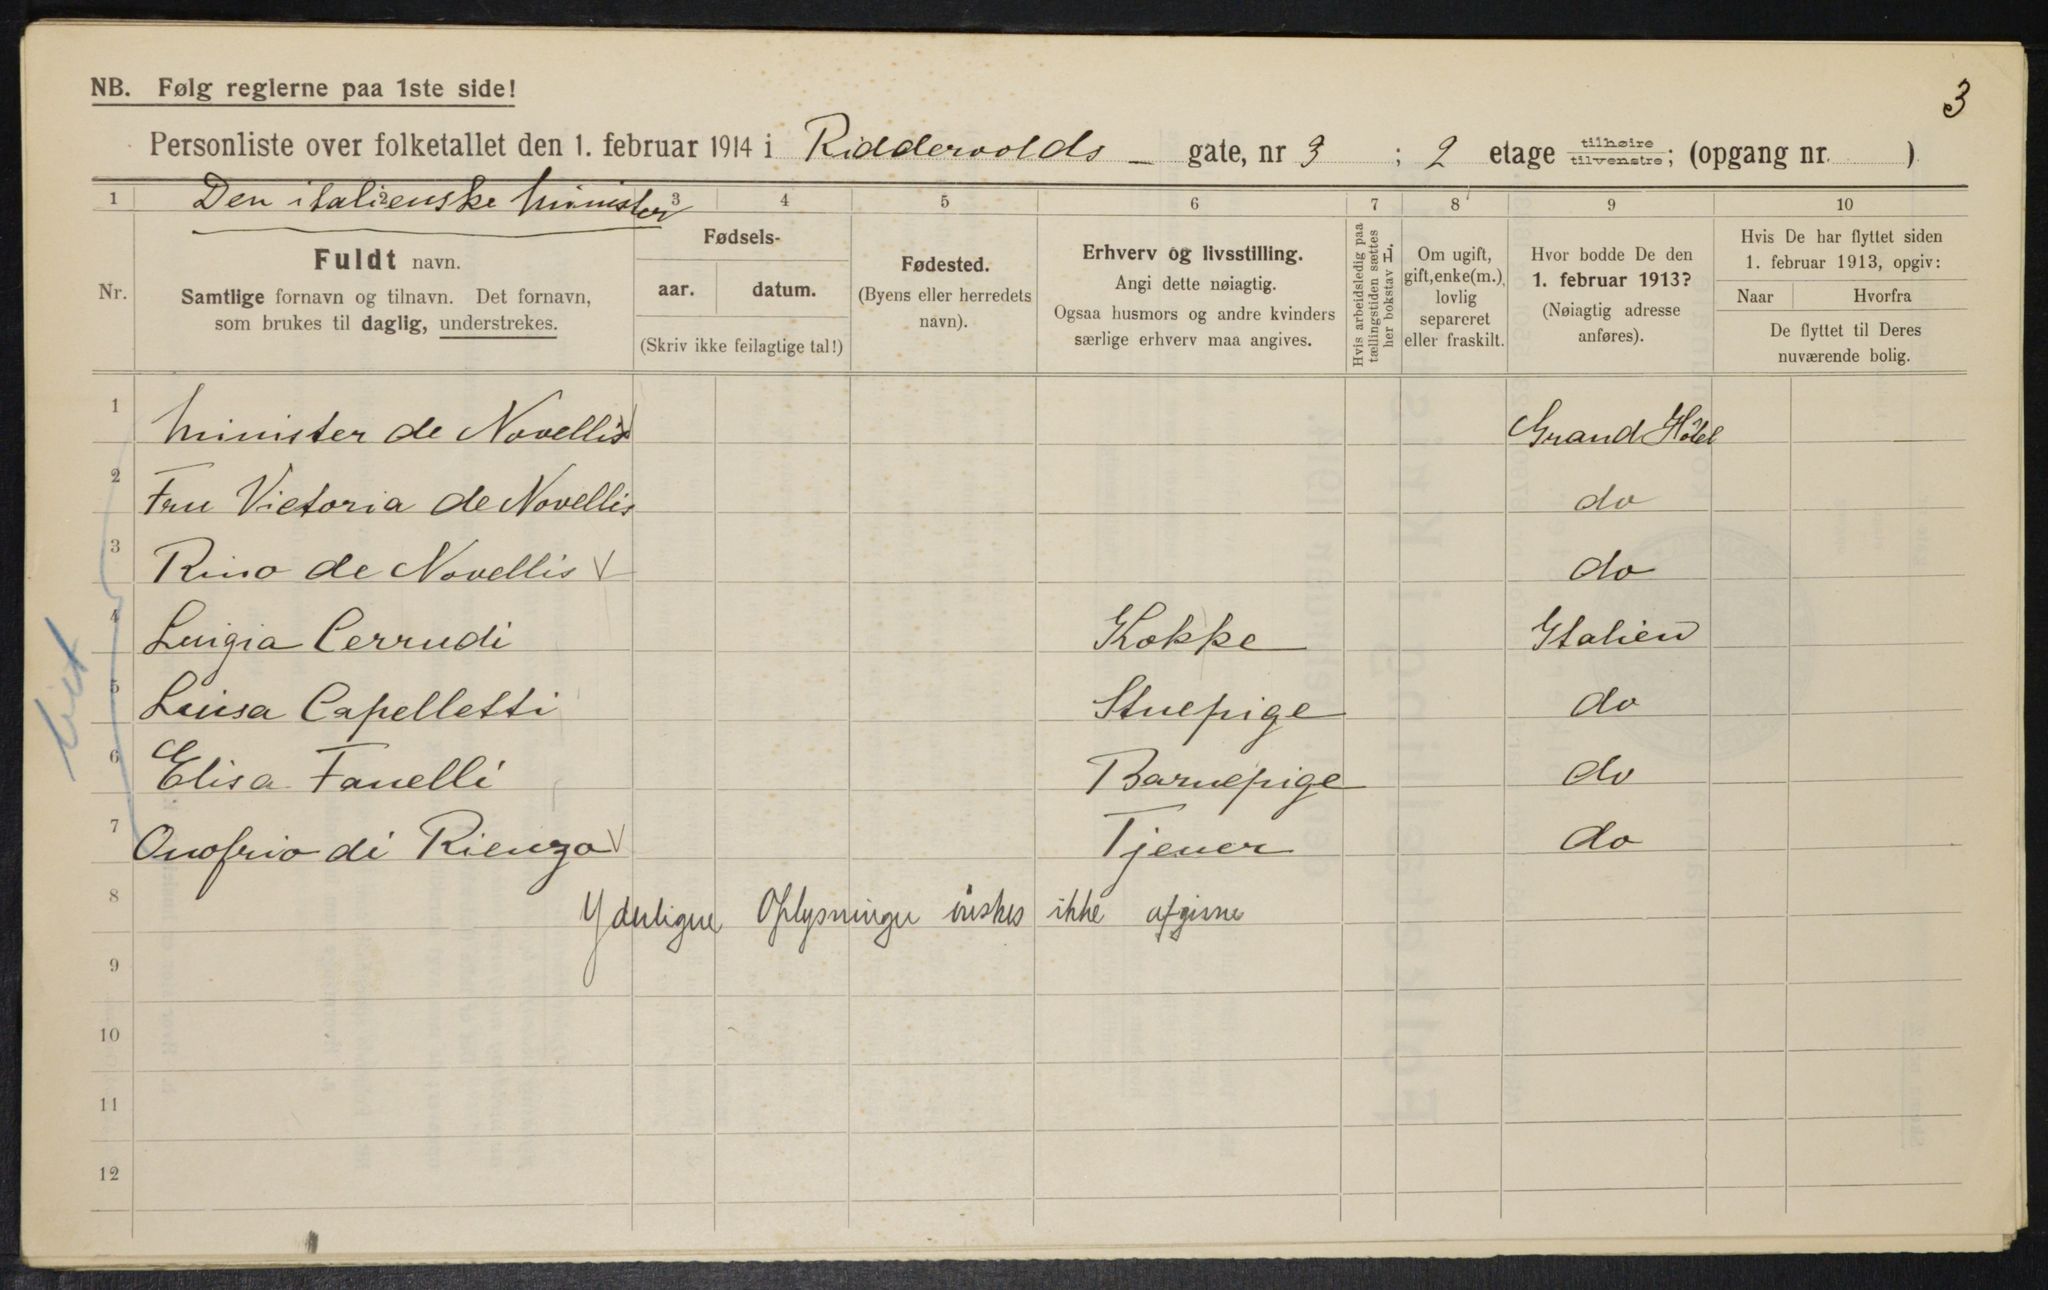 3
NB. Følg reglerne paa 1ste side!
Personliste over folketallet den 1. februar 1914 i Riddervolds gate, nr 3 ; 2 etage tilhøire tilvenstre; (opgang nr. )
Den italienske Minister
1 2 3 4 5 6 7 8 9 10
Nr.
Fuldt navn.
Samtlige fornavn og tilnavn. Det fornavn,
som brukes til daglig, understrekes.
Fødsels-
aar. datum.
(Skriv ikke feilagtige tal!)
Fødested.
(Byens eller herredets
navn).
Erhverv og livsstilling.
Angi dette nøiagtig.
Ogsaa husmors og andre kvinders
særlige erhverv maa angives.
Hvis arbeidsledig paa
tællingstiden sættes
her bokstav L.
Om ugift,
gift, enke(m.),
lovlig
separeret
eller fraskilt.
Hvor bodde De den
1. februar 1913?
(Nøiagtig adresse
anføres).
Hvis De har flyttet siden
1. februar 1913, opgiv:
Naar Hvorfra
De flyttet til Deres
nuværende bolig.
1 Minister de Novellis Grand Hôtel
2 Fru Victoria de Novellis do
3 Rino de Novellis do
4 Luigia Cerrudi Kokke Italien
5 Luisa Capelletti Stuepige do
6 Elisa Fanelli Barnepige do
7 Onofrio di Rienzo Tjener do
8 Yderligere Oplysninger önskes ikke afgivne
9
10
11
12